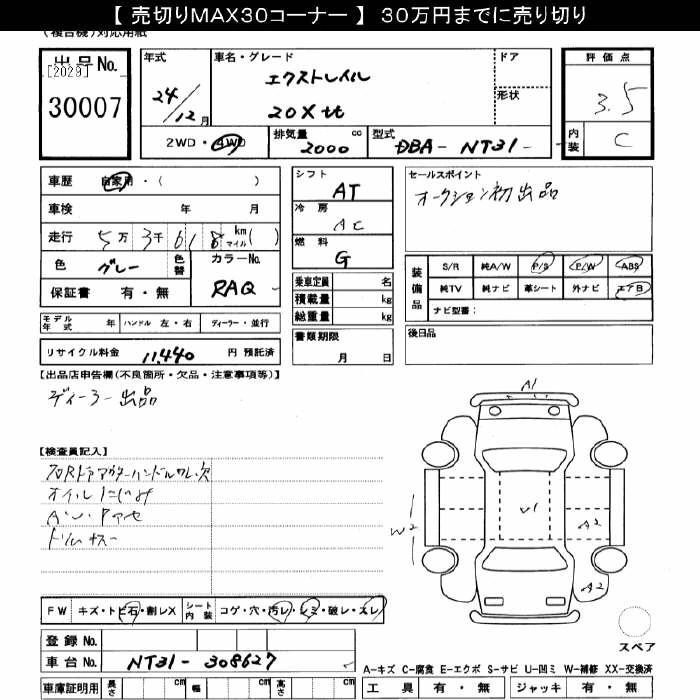 【 売切りMAX30コーナー 】 30万円までに売り切り
(複合機)対応用紙
出品No. [2029] 30007
年式 24/12月
車名・グレード エクストレイル 20Xtt
ドア
形状
評価点 3.5
内装 C
2WD・4WD 排気量 2000 cc 型式 DBA- NT31 -
車歴 自家用・( )
車検 年 月
走行 5万 3千 6 1 8 km マイル ( )
色 グレー 色替 カラーNo. RAQ
保証書 有・無
シフト AT
冷房 AC
燃料 G
乗車定員 名
積載量 kg
総重量 kg
書類期限 月 日
セールスポイント
オークション初出品
装備品 S/R 純A/W P/S P/W ABS
純TV 純ナビ 革シート 外ナビ エアB
ナビ型番:
後日品
モデル年式 年 ハンドル 左・右 ディーラー・並行
リサイクル料金 11,440 円 預託済
【出品店申告欄(不良箇所・欠品・注意事項等)】
ディーラー出品
【検査員記入】
オイルにじみ
A1
W2
U1
A2
A2
FW キズ・トビ石・割レX シート内装 コゲ・穴・汚レ・シミ・破レ・スレ
登録No.
車台No. NT31- 308627
車庫証明用 長さ cm 幅 cm 高さ cm
スペア
A-キズ C-腐食 E-エクボ S-サビ U-凹ミ W-補修 XX-交換済
工具 有・無 ジャッキ 有・無